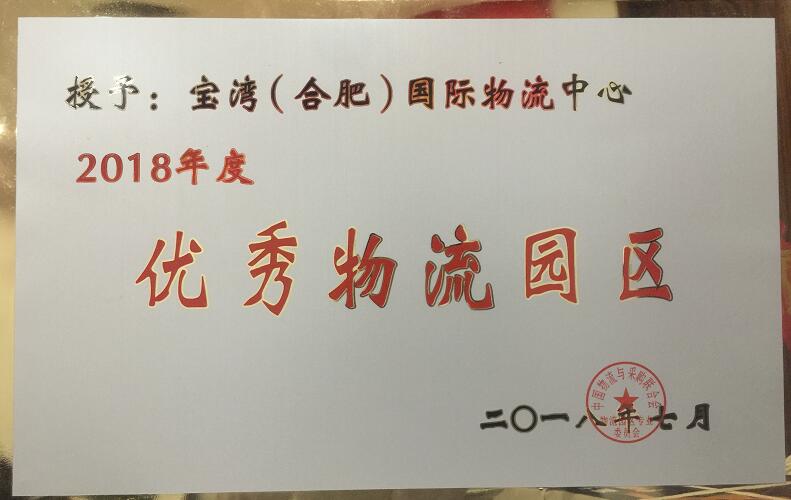 授予：宝湾（合肥）国际物流中心
2018年度
优秀物流园区
二〇一八年七月
中国物流与采购联合会
物流园区专业
委员会